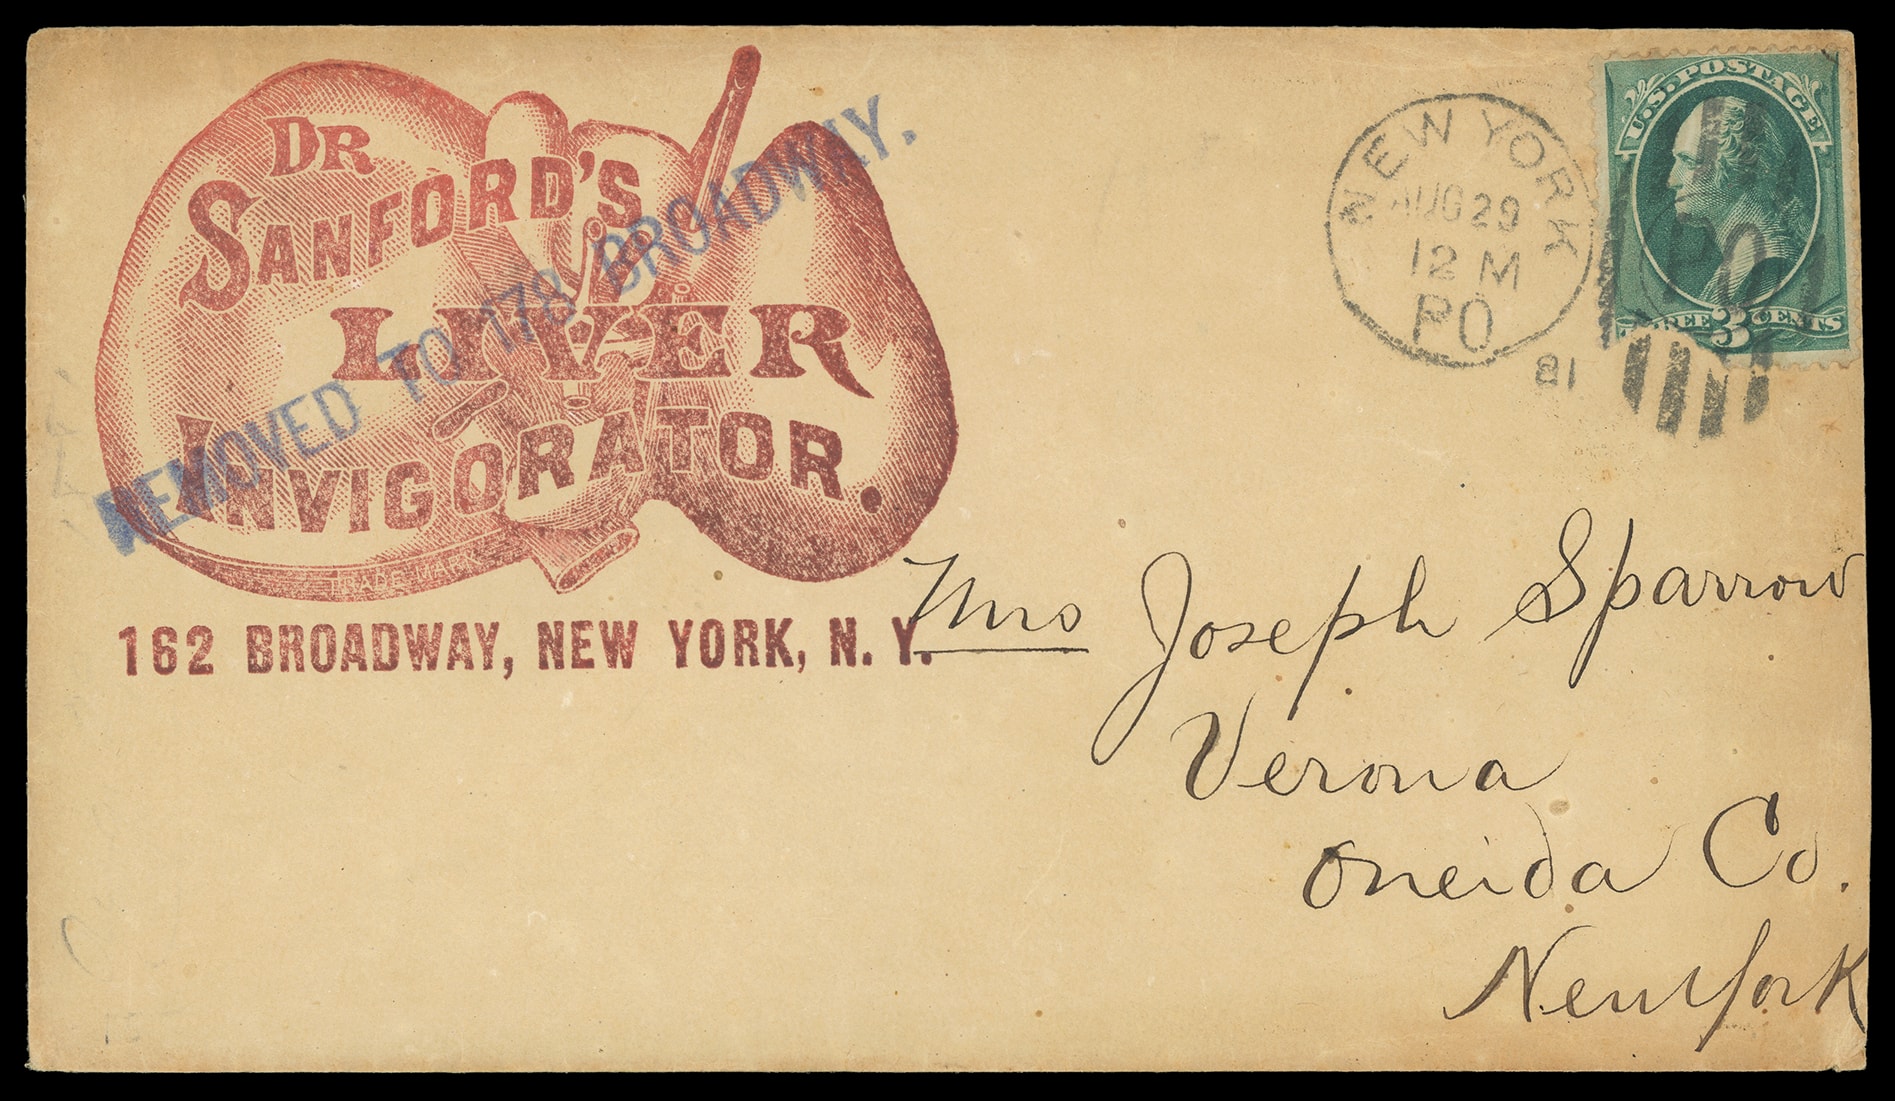 DR
SANFORD'S
LIVER
INVIGORATOR.
TRADE MARK
162 BROADWAY, NEW YORK, N. Y.
REMOVED TO 178 BROADWAY.
NEW YORK
AUG 29
12 M
PO
81
U.S. POSTAGE
THREE 3 CENTS
Mrs Joseph Sparrow
Verona
Oneida Co.
New York